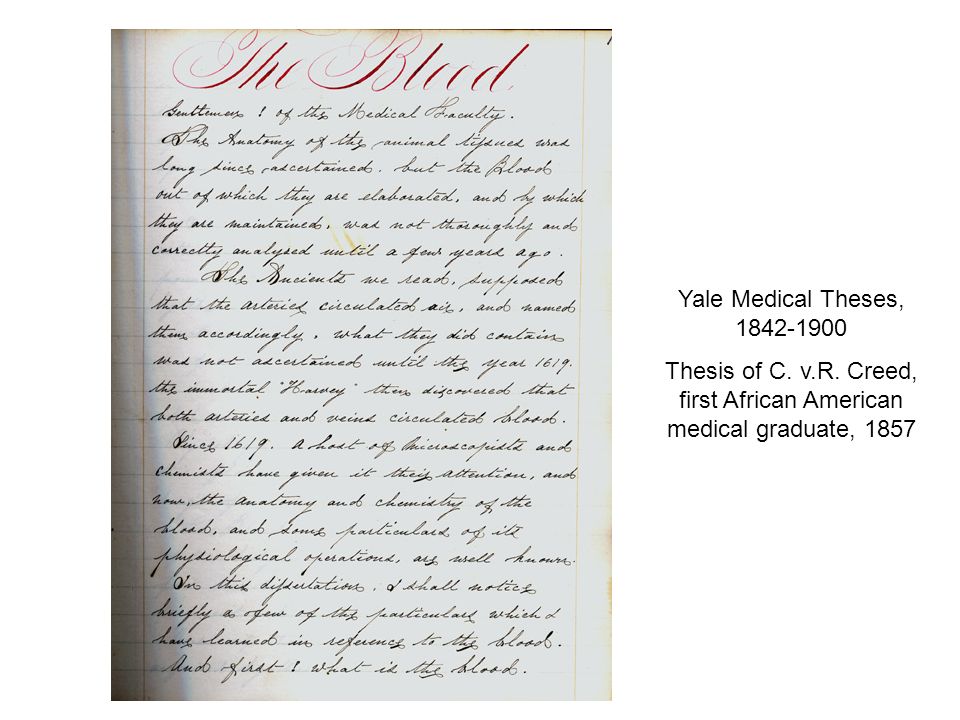 The Blood.
Gentlemen ! of the Medical Faculty.
The Anatomy of the animal tissues was
long since ascertained. but the Blood
out of which they are elaborated, and by which
they are maintained, was not thoroughly and
correctly analysed until a few years ago.
The Ancients we read, supposed
that the arteries circulated air, and named
them accordingly, what they did contain
was not ascertained until the year 1619.
the immortal "Harvey" then discovered that
both arteries and veins circulated blood.
Since 1619. a host of Microscopists and
chemists have given it their attention, and
now, the anatomy and chemistry of the
blood, and some particulars of its
physiological operations, are well known.
In this dissertation, I shall notice
briefly a few of the particulars which I
have learned in reference to the blood.
And first ! what is the blood.
Yale Medical Theses,
1842-1900
Thesis of C. v.R. Creed,
first African American
medical graduate, 1857